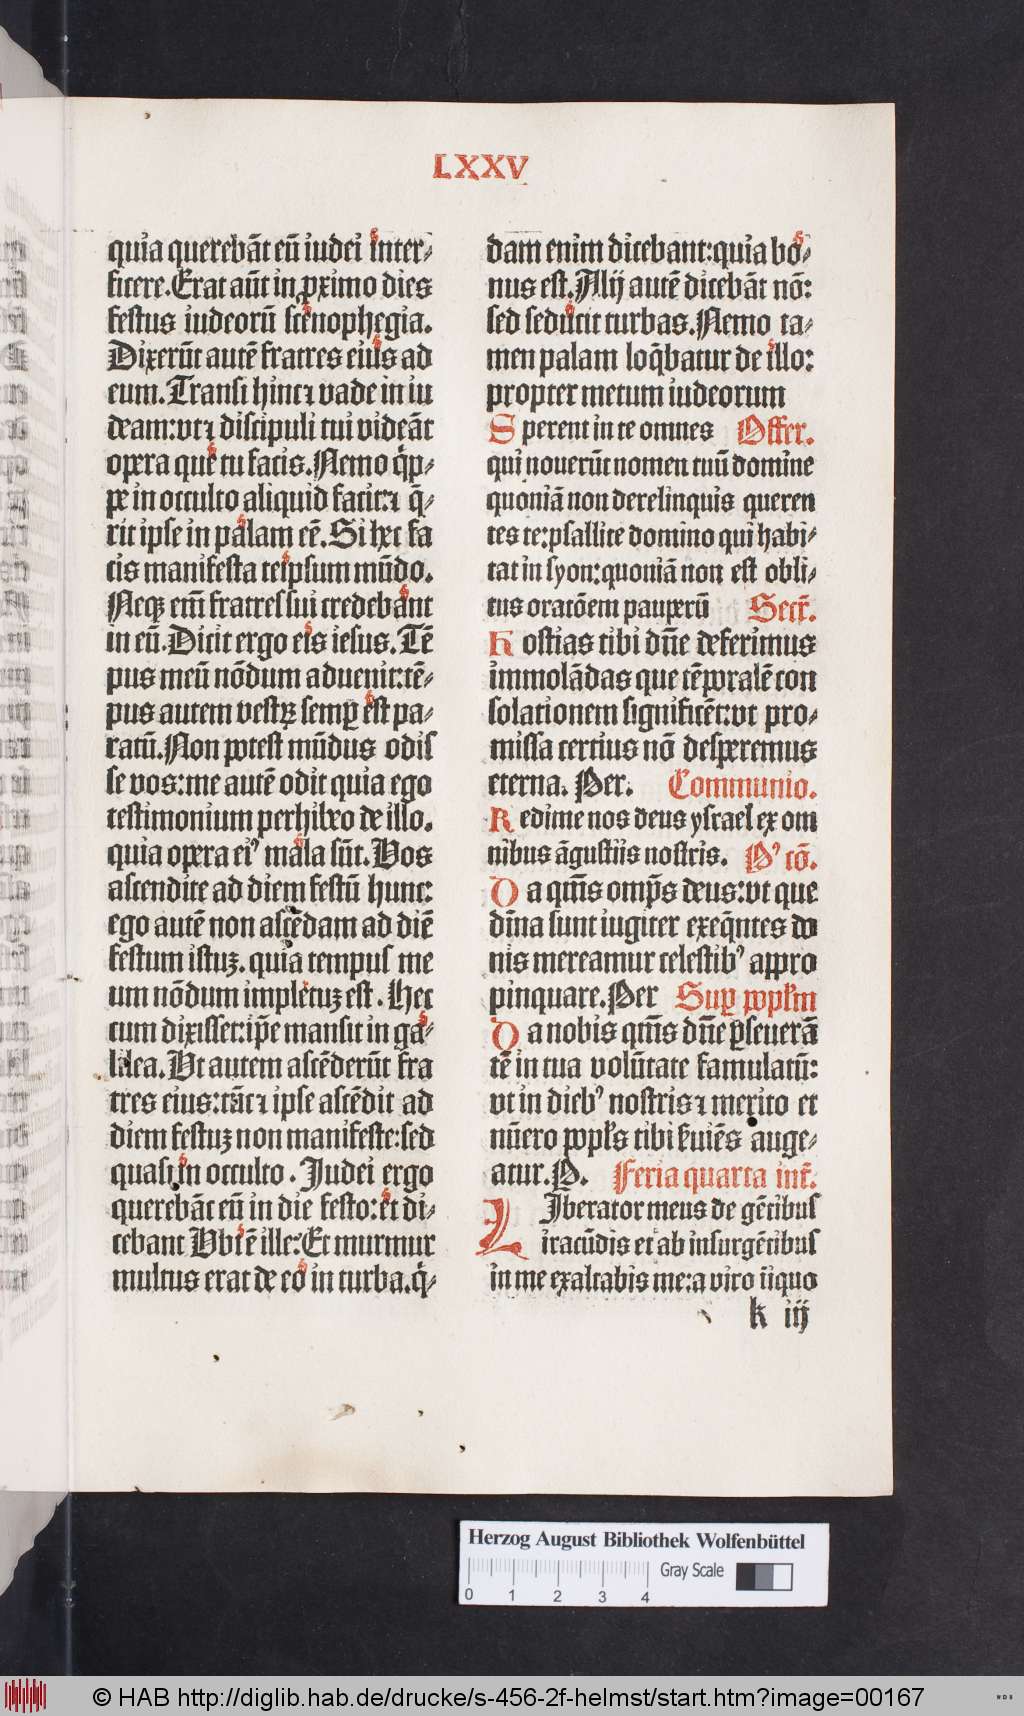 LXXV
quia querebāt eū iudei inter⸗
ficere. Erat aūt in ꝓximo dies
festus iudeorū scenophegia.
Dixerūt autē fratres eius ad
eum. Transi hinc ⁊ vade in iu
deam: vt ⁊ discipuli tui videāt
opera que tu facis. Nemo q̄p⸗
pe in occulto aliquid facit: ⁊ q̄⸗
rit ipse in palam eē. Si hec fa
cis manifesta teipsum mūdo.
Neqꝫ em̄ fratres sui credebant
in eū. Dicit ergo eis iesus. Tē
pus meū nōdum aduenit: tē⸗
pus autem vestrꝫ semꝑ est pa⸗
ratū. Non potest mūdus odis
se vos: me autē odit quia ego
testimonium perhibeo de illo.
quia opera eiꝰ mala sūt. Vos
ascendite ad diem festū hunc:
ego autē non ascēdam ad diē
festum istuꝫ. quia tempus me
um nōdum impletuꝫ est. Hec
cum dixisset: ip̄e mansit in ga⸗
lilea. Vt autem ascēderūt fra
tres eius: tāc ⁊ ipse ascēdit ad
diem festuꝫ non manifeste: sed
quasi in occulto. Judei ergo
querebāt eū in die festo: et di⸗
cebant Vbi ē ille: Et murmur
multus erat de eo in turba. q̄⸗
dam enim dicebant: quia bo⸗
nus est. Alij autē dicebāt nō:
sed seducit turbas. Nemo ta⸗
men palam loq̄batur de illo:
propter metum iudeorum
Sperent in te omnes Offer.
qui nouerūt nomen tuū domine
quoniā non derelinquis queren
tes te: psallite domino qui habi⸗
tat in syon: quoniā non est obli⸗
tus oratōem pauperū Secr̄.
Hostias tibi dn̄e deferimus
immolādas que tēporalē con
solationem significēt: vt pro⸗
missa certius nō desperemus
eterna. Per. Communio.
Redime nos deus ysrael ex om
nibus āgustiis nostris. Pꝰ cō.
Da qūs omp̄s deus: vt que
dīna sunt iugiter exeq̄ntes do
nis mereamur celestibꝰ appro
pinquare. Per Suꝑ popl̄m
Da nobis qūs dn̄e ꝑseuerā
tē in tua volūtate famulatū:
vt in diebꝰ nostris ⁊ merito et
nūero popl̄s tibi ẜuiēs auge⸗
atur. P. Feria quarta int̄.
Liberator meus de gētibus
iracūdis et ab insurgētibus
in me exaltabis me: a viro īiquo
k iij
Herzog August Bibliothek Wolfenbüttel
Gray Scale
0 1 2 3 4
© HAB http://diglib.hab.de/drucke/s-456-2f-helmst/start.htm?image=00167